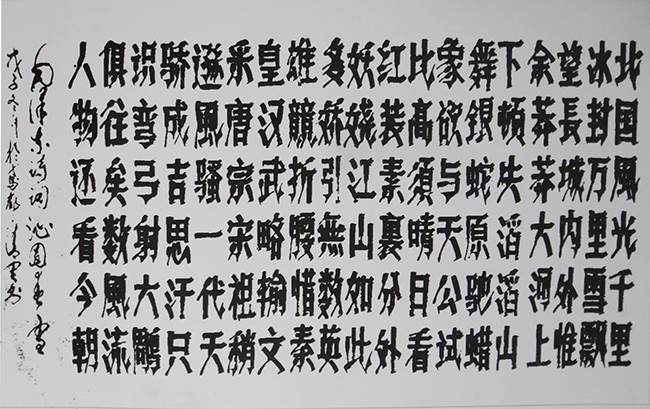 北国風光千里
冰封万里雪飄
望長城内外惟
余莽莽大河上
下頓失滔滔山
舞銀蛇原馳蜡
象欲与天公試
比高須晴日看
红装素裹分外
妖娆江山如此
多娇引無數英
雄競折腰惜秦
皇汉武略輸文
采唐宗宋祖稍
遜風騷一代天
骄成吉思汗只
识弯弓射大鵰
俱往矣數風流
人物还看今朝
毛泽东诗词沁園春雪
戊子冬月於